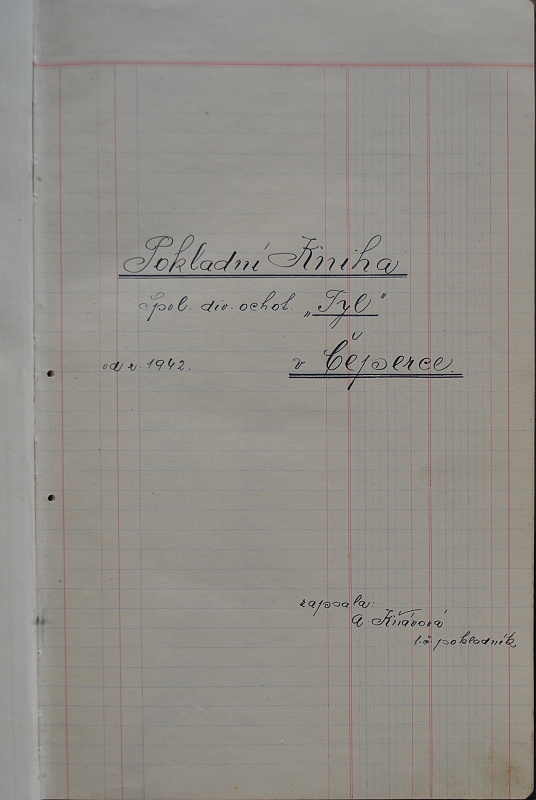 Pokladní Kniha
Spol. div. ochot. „Tyl“
od r. 1942. v Čeperce.
zapsala:
A. Kňávová
t.č. pokladník